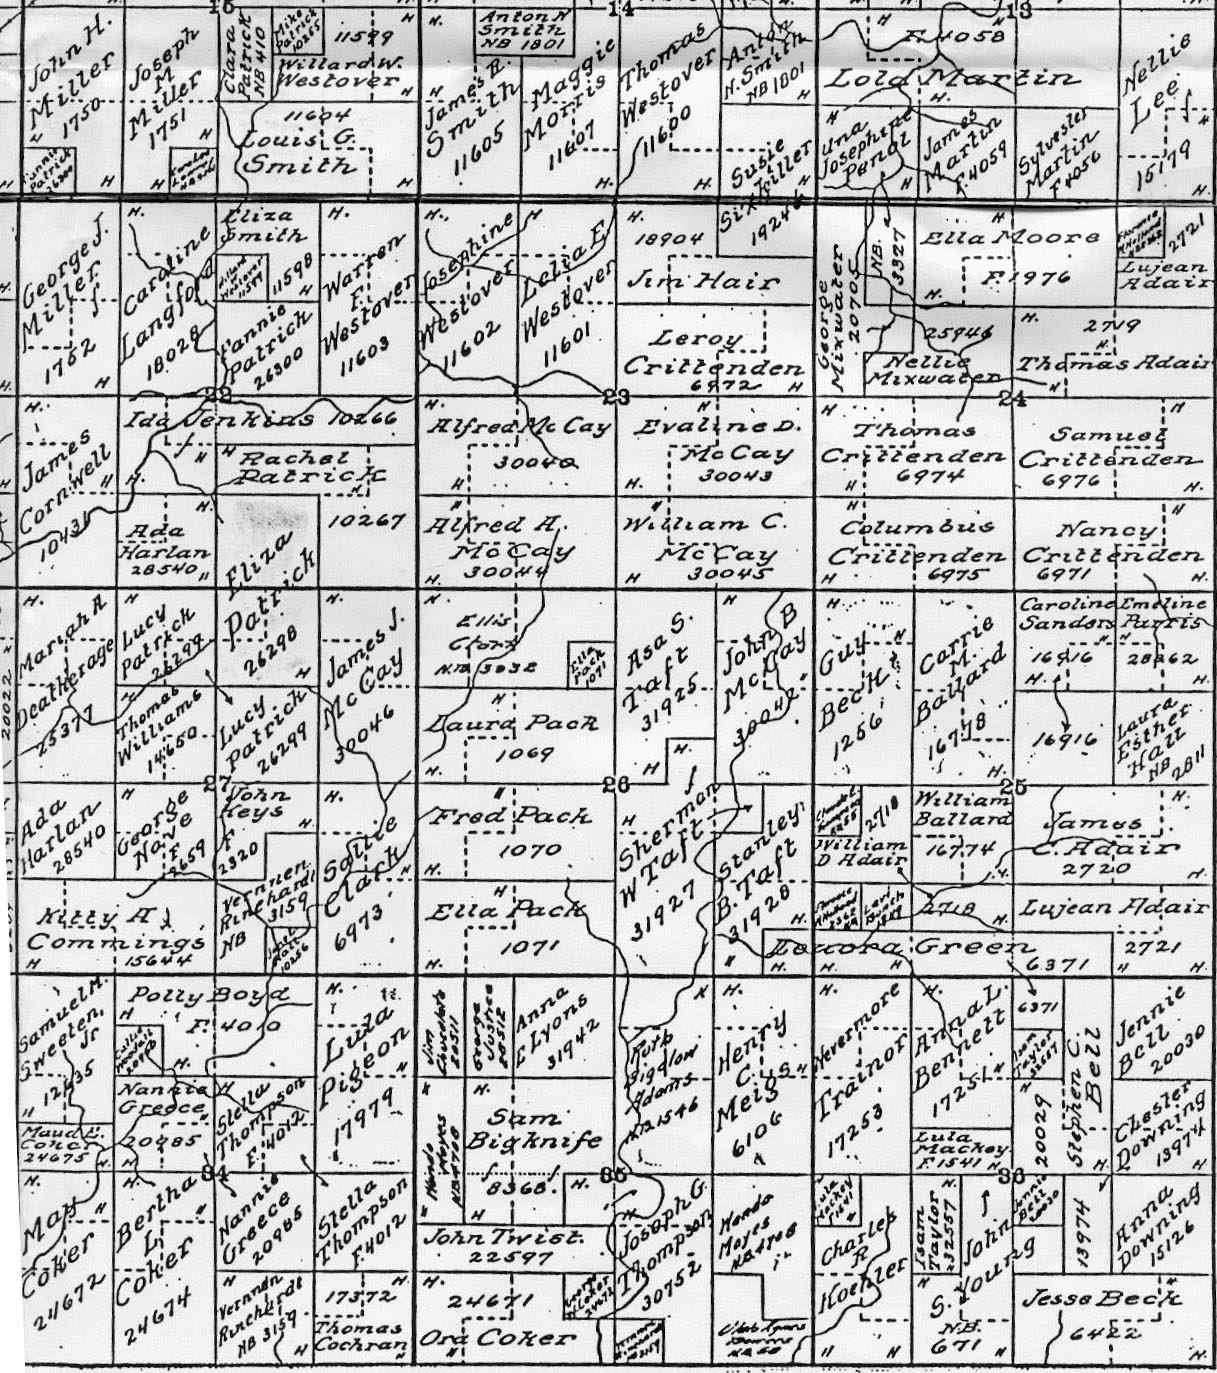 15
14
13
John H.
Miller
1750
Joseph
M
Miller
1751
Clara
Patrick
NB 410
Mike
Patrick
10265
11599
Willard W.
Westover
11604
Louis G.
Smith
Fannie
Patrick
26300
Anton N
Smith
NB 1801
James R.
Smith
11605
Maggie
Morris
11607
Thomas
Westover
11600
Anton
N. Smith
NB 1801
Susie
Sixkiller
19246
F. 4058
Lola Martin
Una
Josephine
Penal
James
Martin
F. 4059
Sylvester
Martin
F. 4056
Nellie
Lee
15179
George J.
Miller
1752
Caroline
Langford
18028
Eliza
Smith
11598
Willard
Westover
11599
Fannie
Patrick
26300
Warren
F.
Westover
11603
Josephine
Westover
11602
Lelia E.
Westover
11601
18904
Jim Hair
Leroy
Crittenden
6972
George
Mixwater
20705
NB.
3327
Ella Moore
F. 1976
2721
Lujean
Adair
25946
Nellie
Mixwater
2719
Thomas Adair
22
23
24
James
Cornwell
Ida Jenkins 10266
Rachel
Patrick
10267
Ada
Harlan
28540
Eliza
Patrick
26298
Alfred McCay
30040
Evaline D.
McCay
30043
Alfred A.
McCay
30044
William C.
McCay
30045
Thomas
Crittenden
6974
Samuel
Crittenden
6976
Columbus
Crittenden
6975
Nancy
Crittenden
6971
20022
Mariah A
Deatherage
25377
Lucy
Patrick
26299
Thomas
Williams
14650
Lucy
Patrick
26299
James J.
McCay
30046
Ellis
Clark
NB 3032
Ella
Pack
1071
Laura Pack
1069
Asa S.
Taft
31925
John B
McCay
30042
Guy
Beck
1256
Carrie
M.
Ballard
16778
Caroline
Sanders
16916
Emeline
Parris
28262
16916
Laura
Esther
Hall
NB 2811
27
26
25
Ada
Harlan
28540
George
Nave
F
2659
John
Keys
F
2320
Vernnen
Rinehardt
3159
NB
10266
Sallie
Clark
6973
Kitty A
Commings
15644
Fred Pack
1070
Ella Pack
1071
Sherman
W Taft
31927
Stanley
B. Taft
31928
2718
William
D Adair
William
Ballard
16774
2718
James
C. Adair
2720
Lujean Adair
2721
Louora Green
6371
Samuel M.
Sweeten,
Jr
12535
Polly Boyd
F. 4010
Nannie
Greece
20985
Maud E.
Coker
24675
Stella
Thompson
F. 4012
Lula
Pigeon
17979
George
Justice
20512
Anna
E Lyons
31942
Sam
Bigknife
8368
Ruth
Bigelow
Adams
NB 1546
Henry
C.
Meigs
6106
Nevermore
Trainor
17253
Anna L.
Bennett
17251
Lula
Mackey
F. 1541
6371
Isam
Taylor
32557
20029
Stephen C.
Bell
Jennie
Bell
20030
Chester
Downing
13974
34
35
36
May
Coker
24672
Bertha
L.
Coker
24674
Nannie
Greece
20985
Stella
Thompson
F. 4012
Vernnen
Rinehardt
NB 3159
17372
Thomas
Cochran
John Twist
22597
24671
Ora Coker
Joseph G.
Thompson
30752
Lula
Mackey
1541
Charley
R
Koehler
Isam
Taylor
32557
John
S. Young
NB.
671
Jennie
Bell
20030
13974
Anna
Downing
15126
Jesse Beck
6422